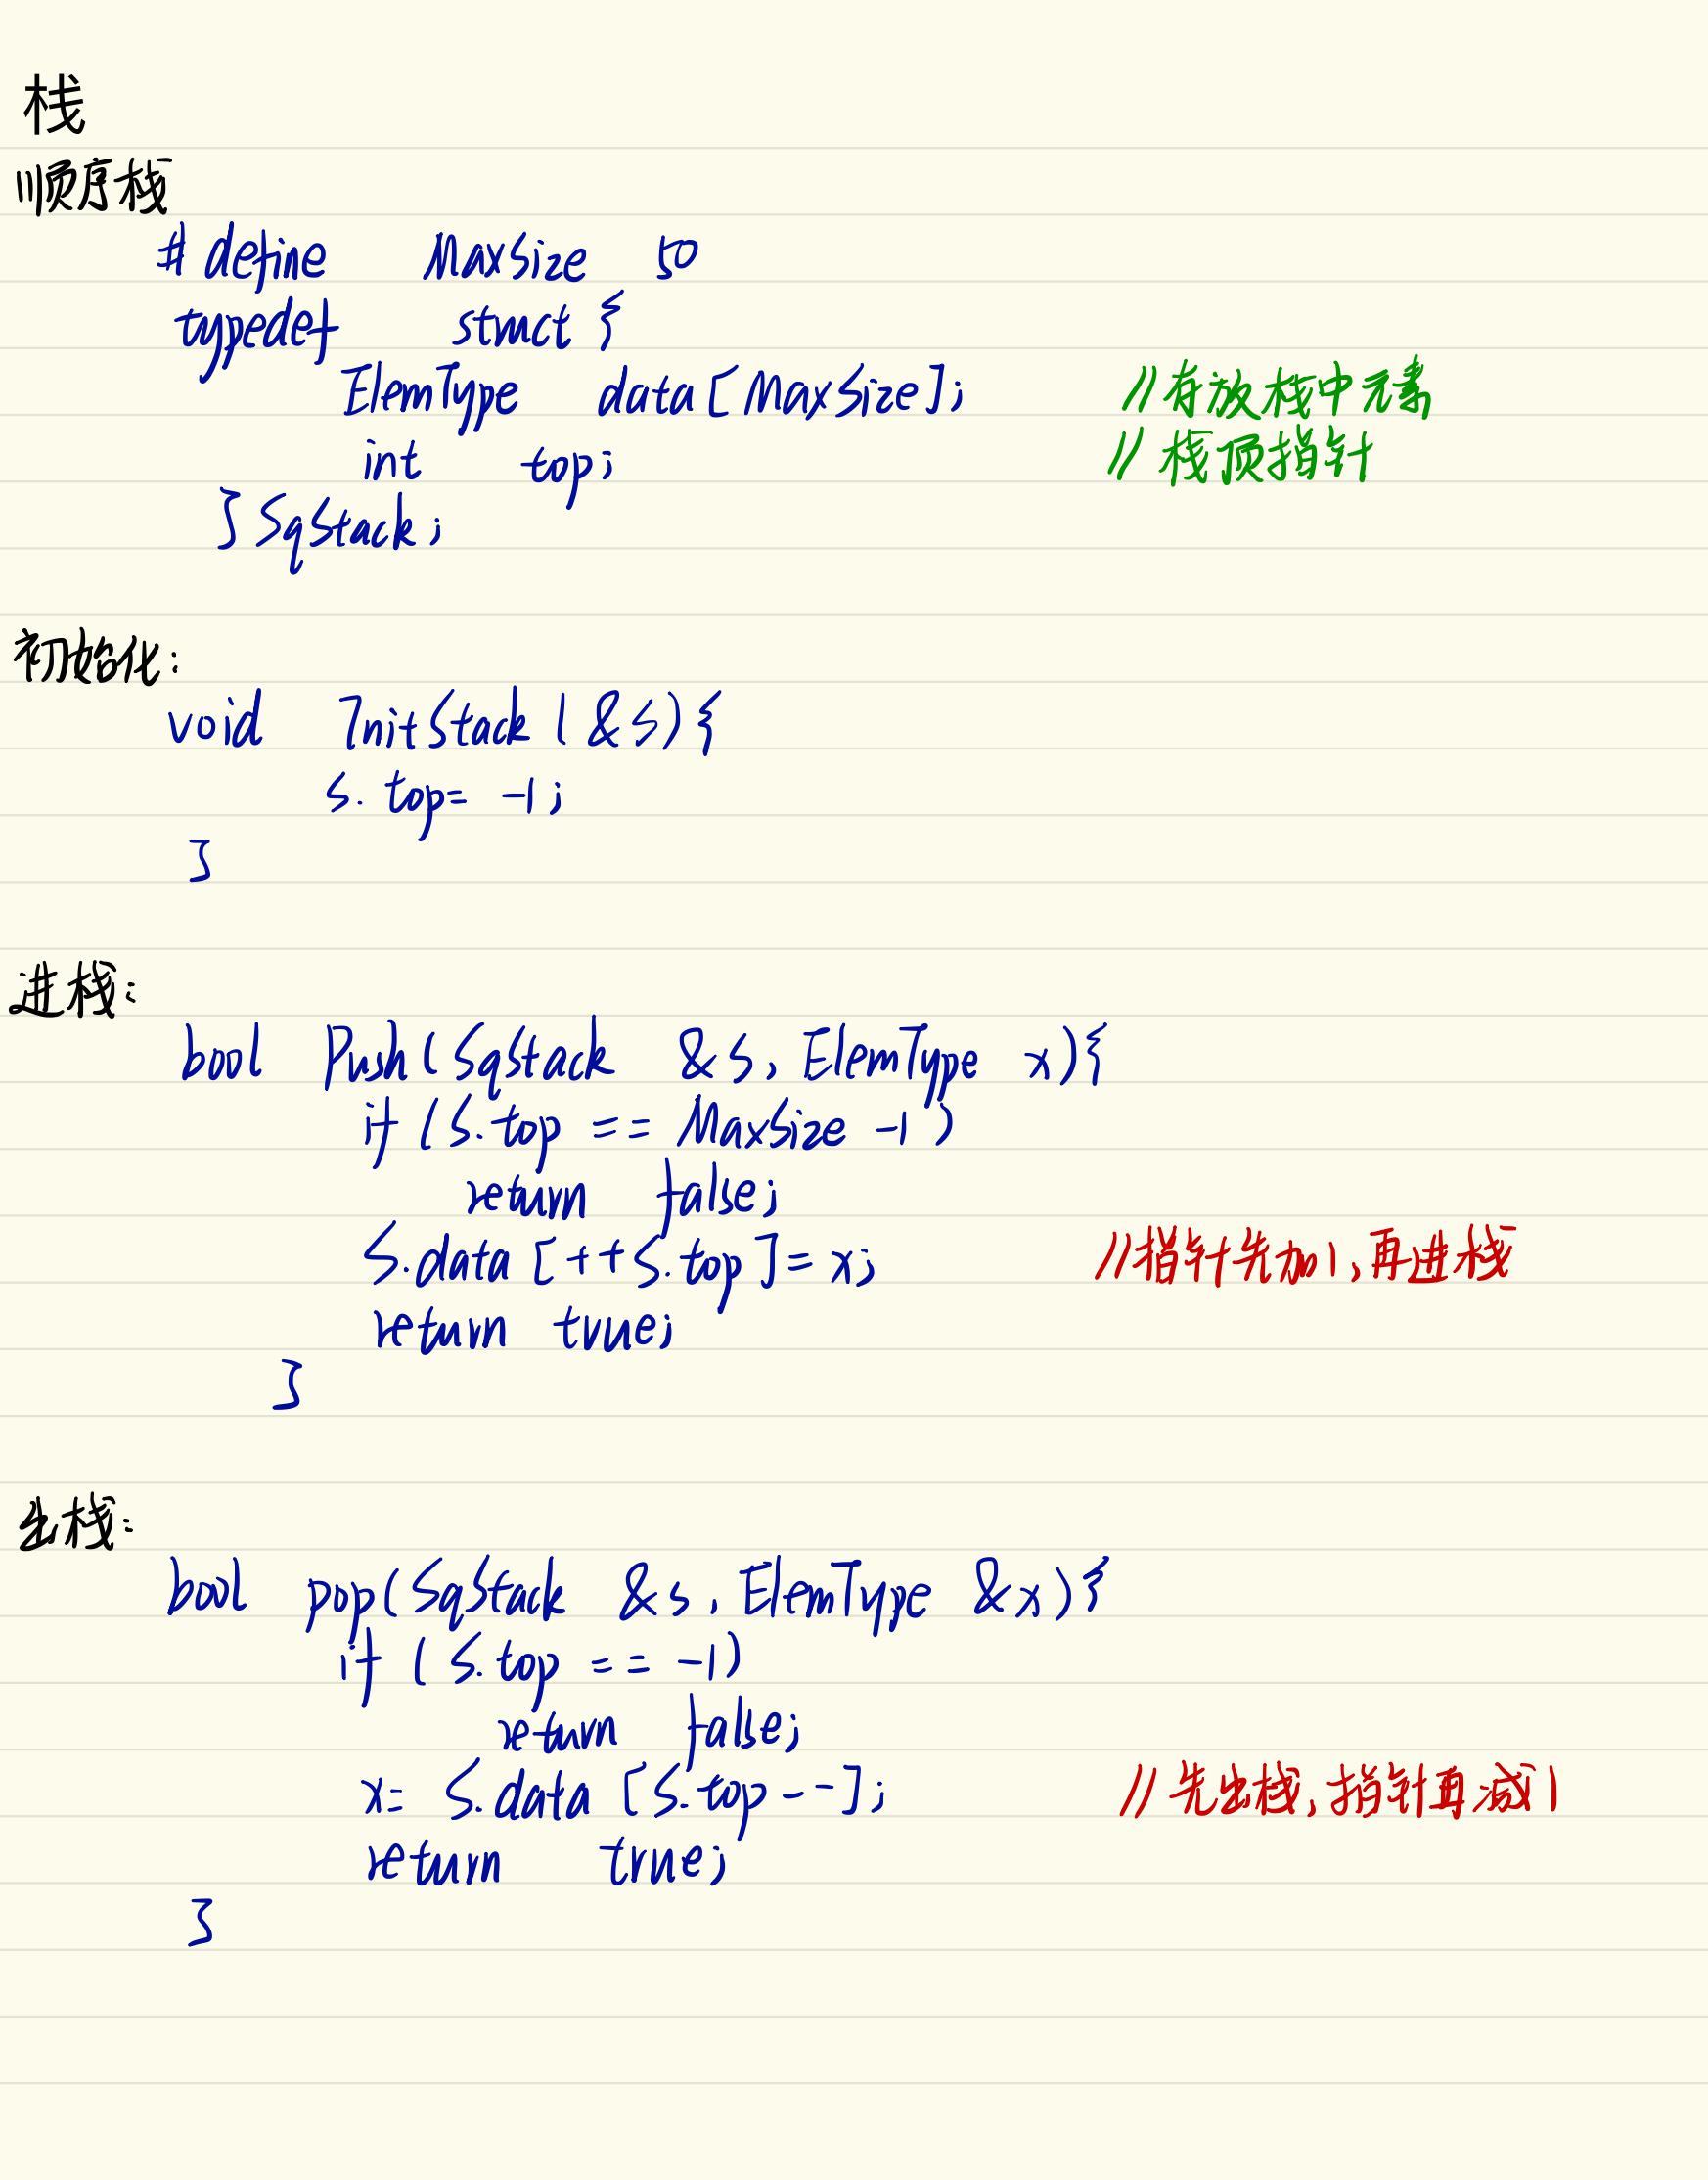 栈
顺序栈
# define MaxSize 50
typedef struct {
ElemType data[MaxSize]; //存放栈中元素
int top; //栈顶指针
}SqStack;
初始化:
void InitStack(&S){
S.top= -1;
}
进栈:
bool Push(SqStack &S, ElemType x){
if (S.top == MaxSize -1)
return false;
S.data[++S.top]=x; //指针先加1,再进栈
return true;
}
出栈:
bool pop(SqStack &S, ElemType &x){
if (S.top == -1)
return false;
x= S.data[S.top--]; //先出栈,指针再减1
return true;
}